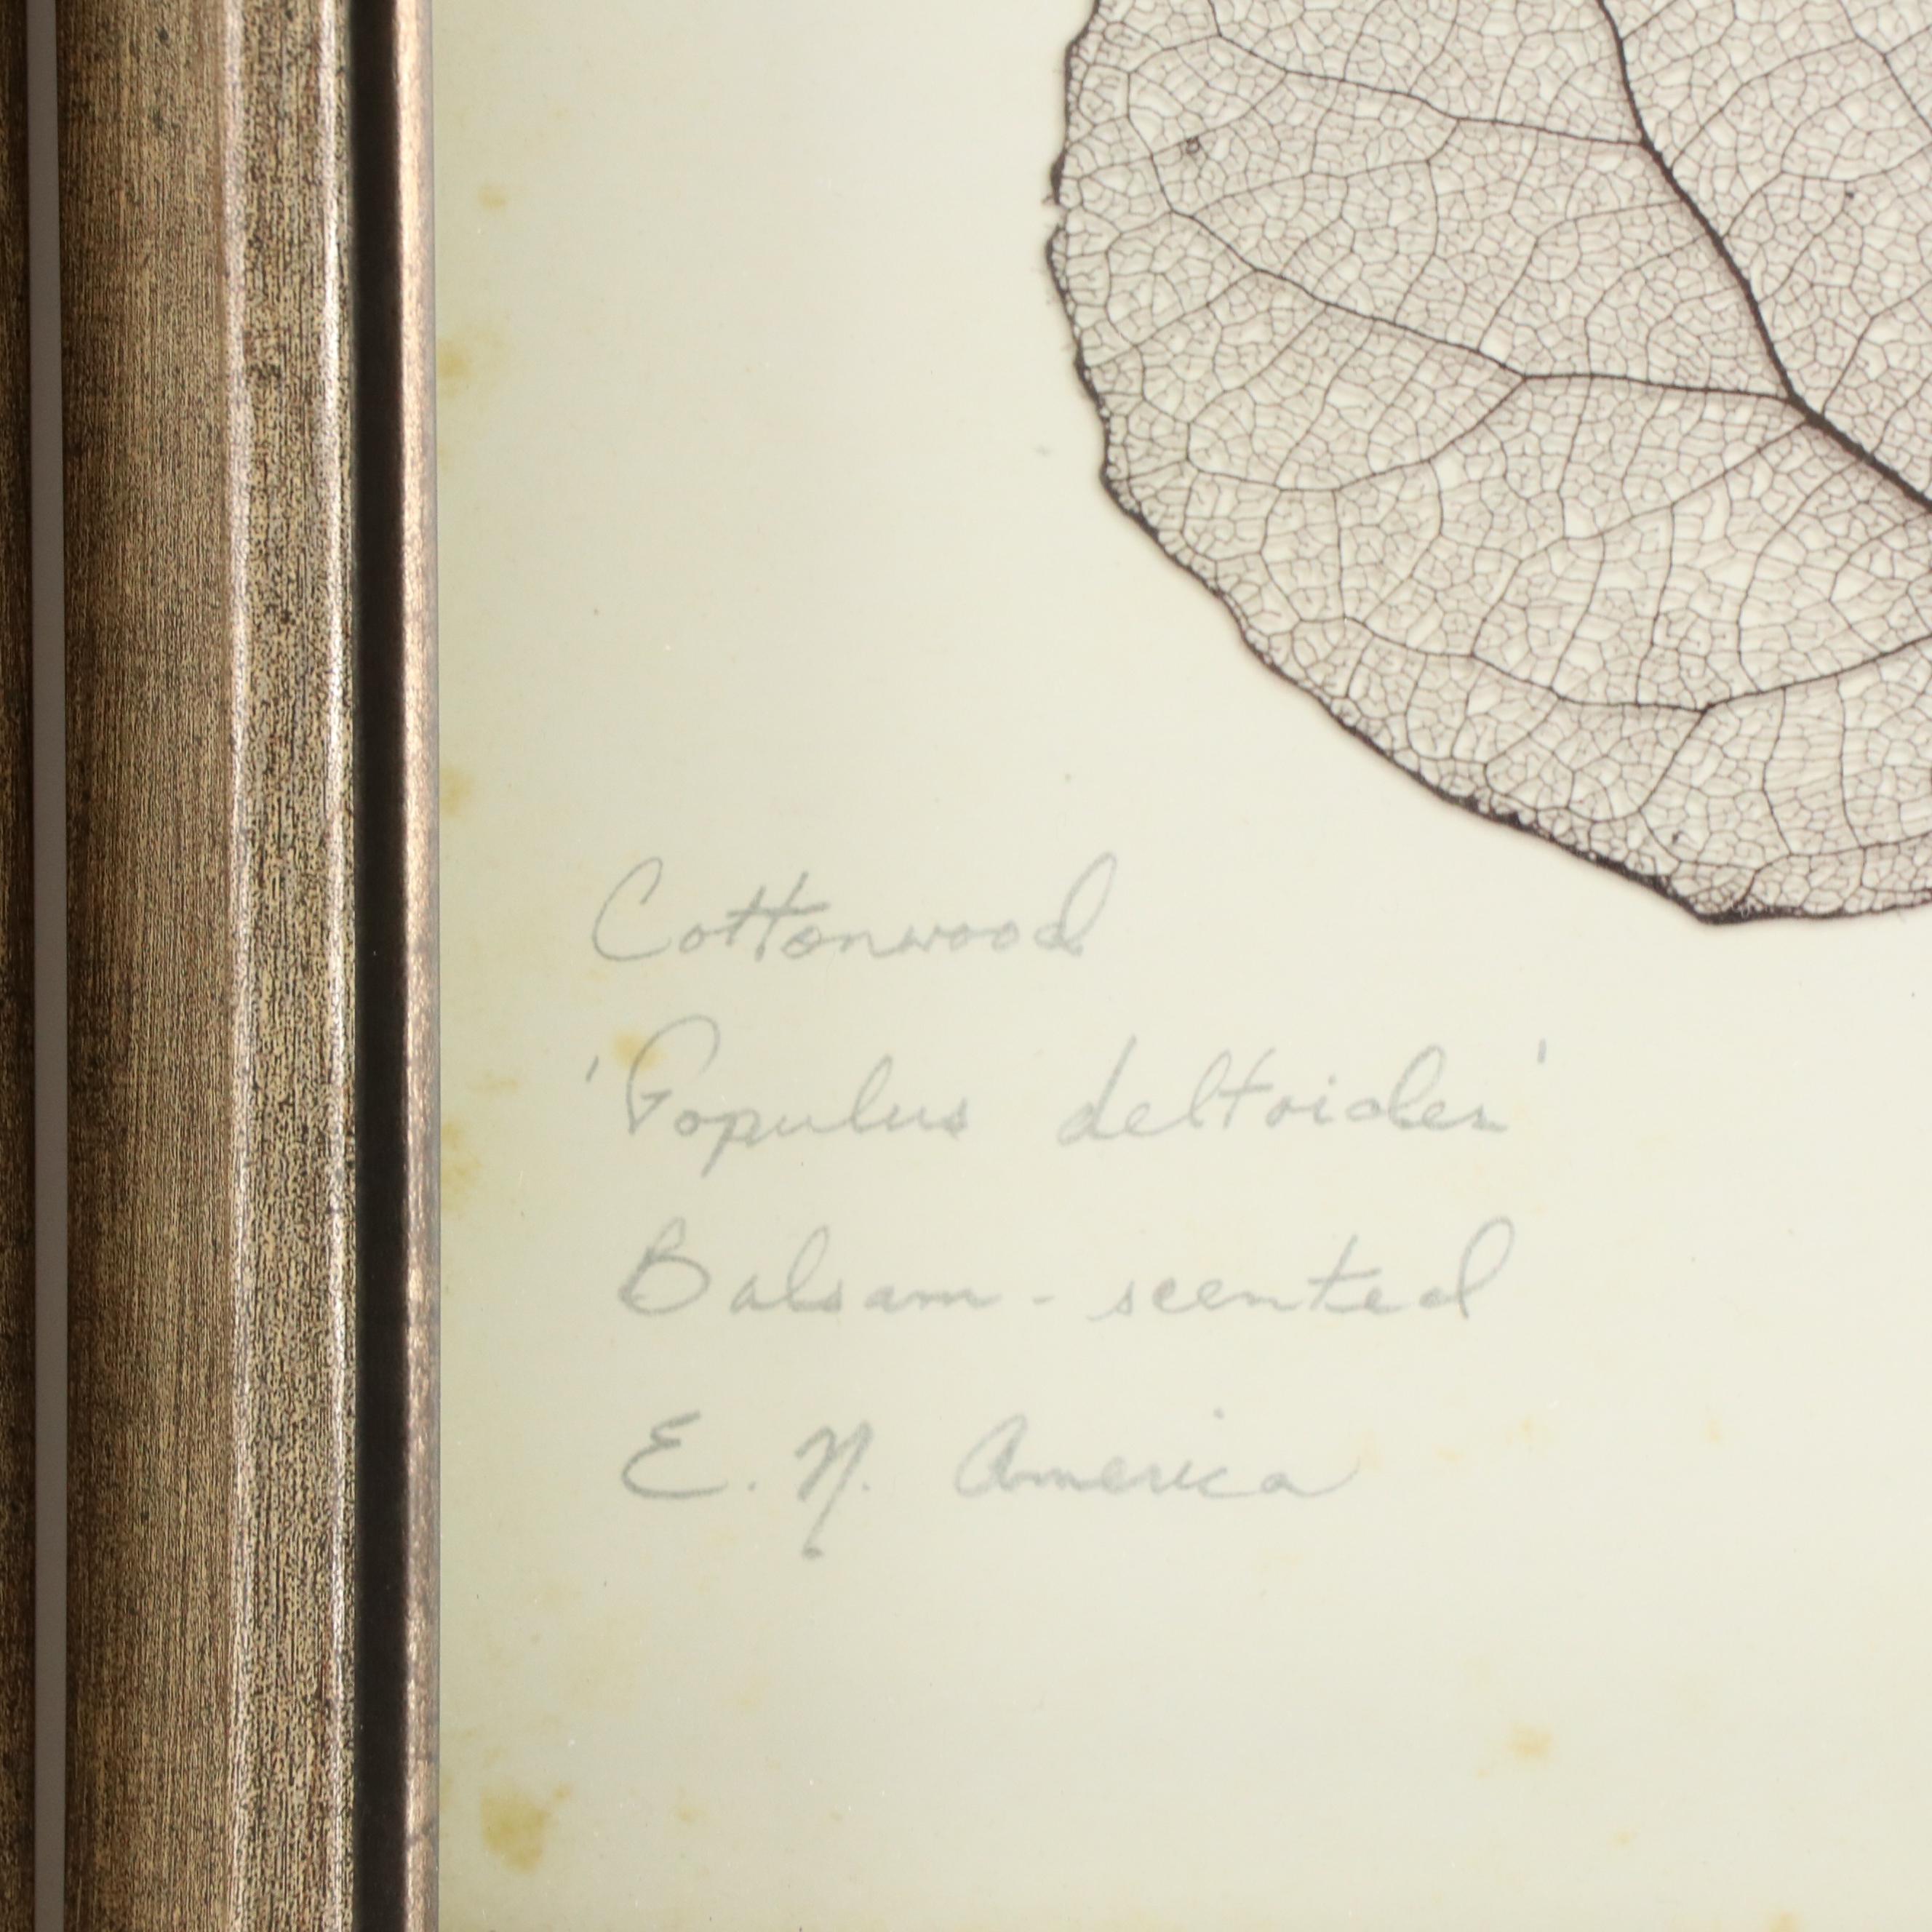 Cottonwood
'Populus deltoides'
Balsam - scented
E. N. America